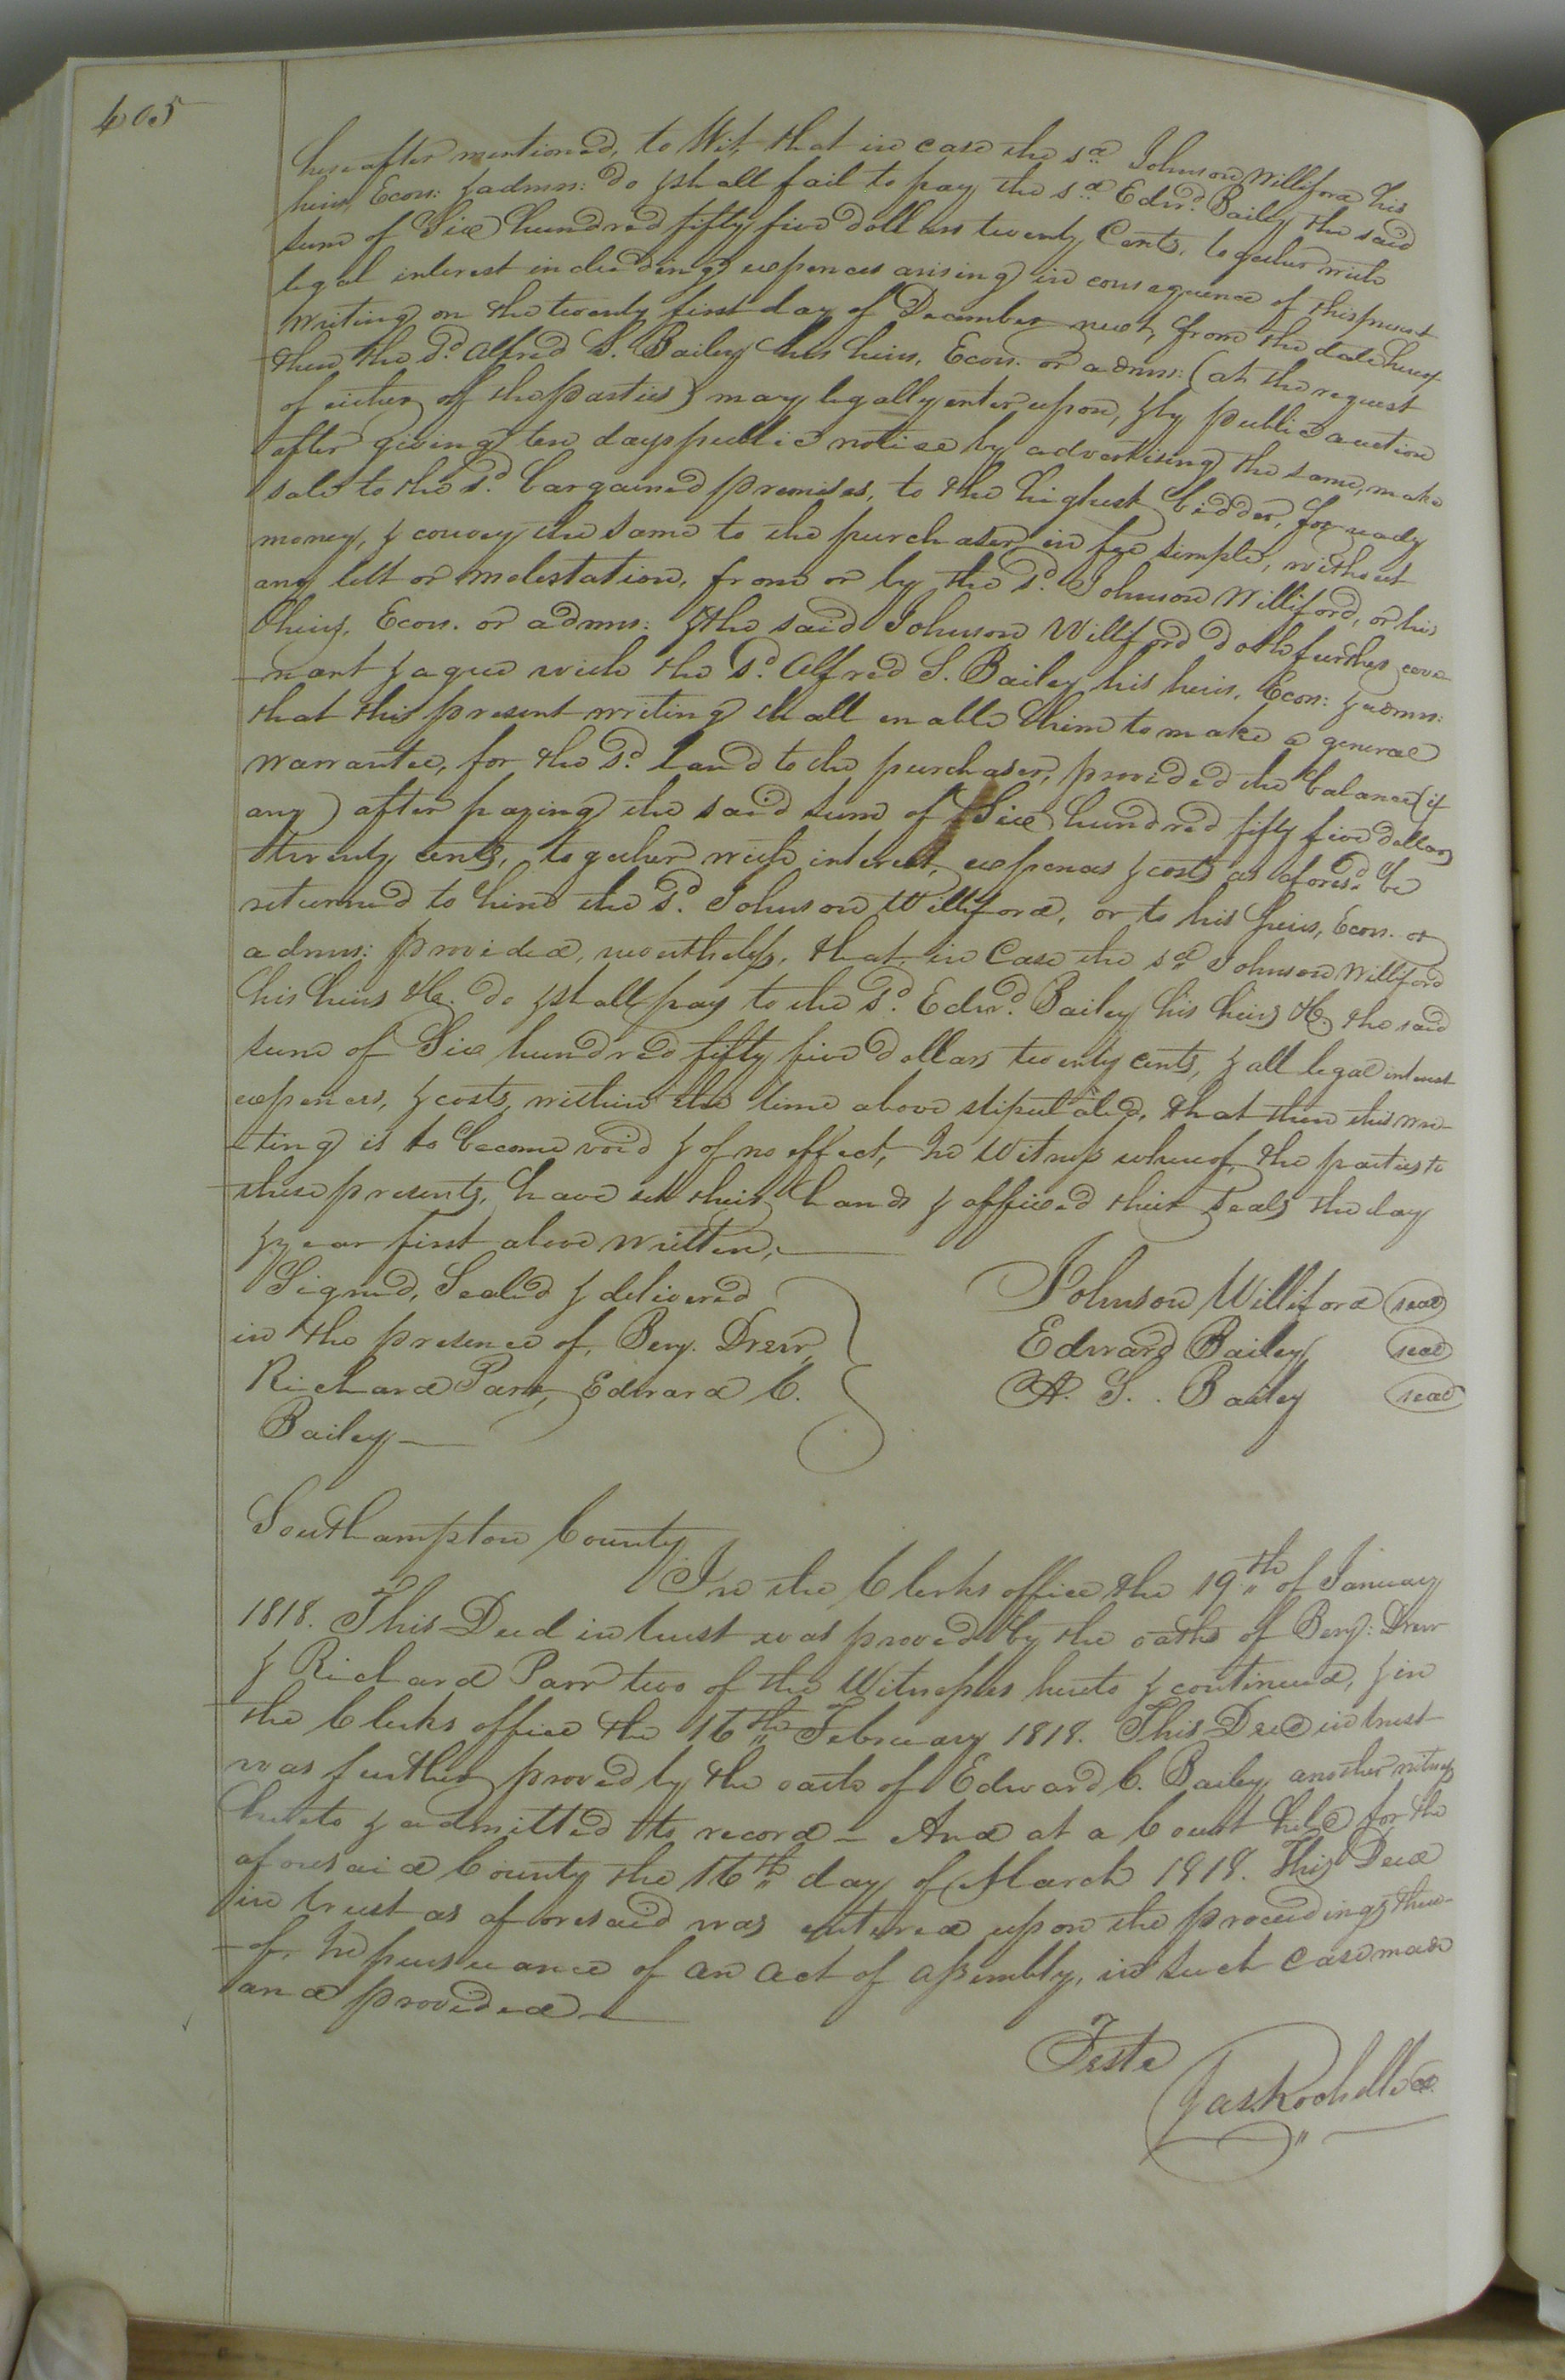 405
hereafter mentioned, to Wit, that in case the sd. Johnson Williford his
heirs, Ecors: & admrs: do & shall fail to pay the sd. Edwd. Bailey the said
sum of Six hundred fifty five dollars twenty Cents, together with
legal interest including expences arising in consequence of this present
writing on the twenty first day of December next, from the date hereof
then the sd. Alfred S. Bailey his heirs, Ecors. or admrs: (at the request
of either of the parties) may legally enter upon, & by public auction
after giving ten days public notice by advertising the same, make
sale to the sd. bargained premises, to the highest bidder, for ready
money, & convey the same to the purchaser in fee simple, without
any lett or molestation, from or by the sd. Johnson Williford, or his
heirs, Ecors. or admrs: & the said Johnson Williford doth further cove-
nant & agree with the sd. Alfred S. Bailey his heirs, Ecors: & admrs:
that this present writing shall enable him to make a general
warrantee, for the sd. land to the purchaser, provided the balance (if
any) after paying the said sum of Six hundred fifty five dollars
twenty cents, together with interest, expences & costs as aforesd. be
returned to him the sd. Johnson Williford, or to his heirs, Ecors. or
admrs: provided, nevertheless, that, in Case the sd. Johnson Williford
his heirs &c. do & shall pay to the sd. Edwd. Bailey his heirs &c. the said
sum of Six hundred fifty five dollars twenty cents, & all legal interest
expences, & costs, within the time above stipulated, that then this wri-
ting is to become void & of no effect, In Witness whereof, the parties to
these presents, have set their hands & affixed their Seals the day
& year first above written,
Signed, Sealed & delivered
in the presence of, Benj. Drew,
Richard Parr, Edward C.
Bailey
Johnson Williford seal
Edward Bailey seal
A. S. Bailey seal
Southampton County
In the Clerks office the 19th of January
1818. This Deed in trust was proved by the oaths of Benj: Drew
& Richard Parr two of the Witnesses hereto & continued, & in
the Clerks office the 16th February 1818. This Deed in trust
was further proved by the oath of Edward C. Bailey another witness
hereto & admitted to record - And at a Court held for the
aforesaid County the 16th day of March 1818. This Deed
in trust as aforesaid was entered upon the proceedings there-
of. In pursuance of an act of assembly, in such case made
and provided
Teste
Jas Rochelle C.